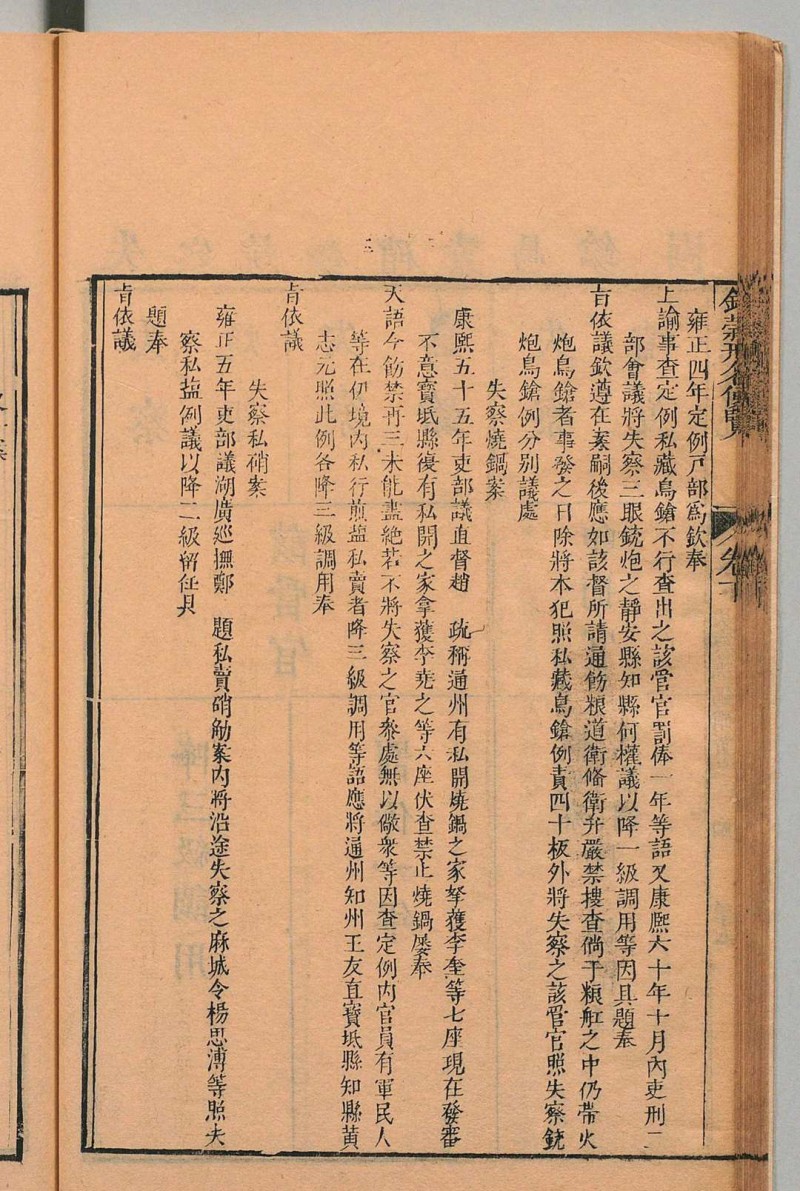 雍正四年定例戸部爲欽奉
上諭事查定例私藏鳥鎗不行查出之該管官罰俸一年等語又康熙六十年十月內吏刑二
部會議將失察三眼銃炮之靜安縣知縣何權議以降一級調用等因具題奉
旨依議欽遵在案嗣後應如該督所請通飭粮道衛俻衛弁嚴禁搜查倘于粮舡之中仍帶火
炮鳥鎗者事發之日除將本犯照私藏鳥鎗例責四十板外將失察之該管官照失察銃
炮鳥鎗例分別議處
失察燒鍋案
康熙五十五年吏部議直督趙　疏稱通州有私開燒鍋之家拏獲李奎等七座現在發審
不意寶坻縣復有私開之家拿獲李堯之等六座伏查禁止燒鍋屡奉
天語今飭禁再三未能盡絕若不將失察之官叅處無以儆衆等因查定例内官員有軍民人
等在伊境内私行煎塩私賣者降三級調用等語應將通州知州王友直寶坻縣知縣黄
志元照此例各降三級調用奉
旨依議
失察私硝案
雍正五年吏部議湖廣巡撫鄭　題私賣硝觔案内將沿途失察之麻城令楊思溥等照失
察私塩例議以降二級留任具
題奉
旨依議